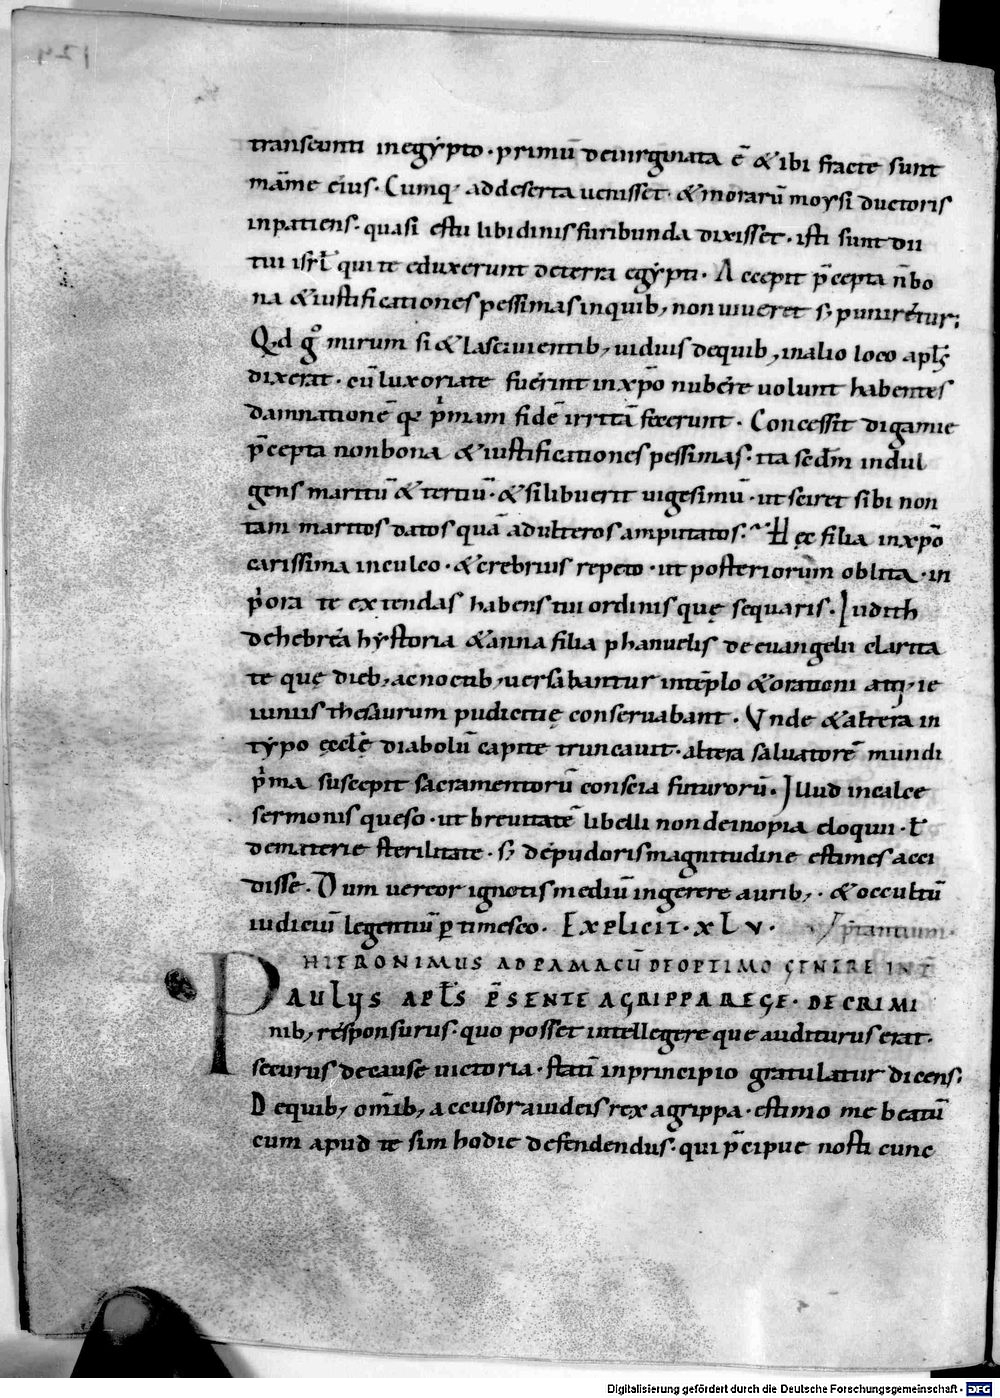 transeunti in egypto · primū deuirginata ē & ibi fracte sunt
māme eius · Cumq; ad deserta uenisset · & morarū moysi ductoris
inpatiens · quasi estu libidinis furibunda dixisset · isti sunt dii
tui isrl̄ qui te eduxerunt de terra egypti · Accepit p̄cepta n̄ bo
na & iustificationes pessimas in quib; non uiueret s; puniretur;
Qd g° mirum si & lasciuientib; uiduis de quib; in alio loco apl̄s
dixerat · cū luxoriate fuerint in xp̄o nubere uolunt habentes
damnationē qa p̍mam fidē irritā fecerunt · Concessit digamie
p̄cepta non bona & iustificationes pessimas · ita sedm̄ indul
gens maritū & tertiū · & si libuerit uigesimū · ut sciret sibi non
tam maritos datos quā adulteros amputatos · Hęc filia in xp̄o
carissima inculco · & crebrius repeto · ut posteriorum oblita · in
p̍ora te extendas habens tui ordinis quę sequaris · Iudith
de hebrea hystoria & anna filia phanuelis de euangelii clarita
te que dieb; ac noctib; uersabantur in tēplo & orationi atq; ie
iuniis thesaurum pudicitię conseruabant · Vnde & altera in
typo ęccl̄ę diabolū capite truncauit · altera saluatorē mundi
p̍ma suscepit sacramentorū conscia futurorū · Illud in calce
sermonis queso · ut breuitatē libelli non de inopia eloquii · ł
de materie sterilitate · s; de pudoris magnitudine estimes acci
disse · Dum uereor ignotis mediū ingerere aurib; · & occultū
iudiciū legentiū ꝑtimesco · Explicit · xLv ·
HIERONIMUS AD PAMACŪ DE OPTIMO GENERE INT̄
p̍tantium ·
PAULUS APL̄S P̄SENTE AGRIPPA REGE · DE CRIMI
nib; responsurus · quo posset intellegere que auditurus erat ·
securus de cause uictoria · statī in principio gratulatur dicens;
De quib; omīb; accusor a iudeis rex agrippa · estimo me beatū
cum apud te sim hodie defendendus · qui p̄cipue nosti cunc
Digitalisierung gefördert durch die Deutsche Forschungsgemeinschaft - DFG